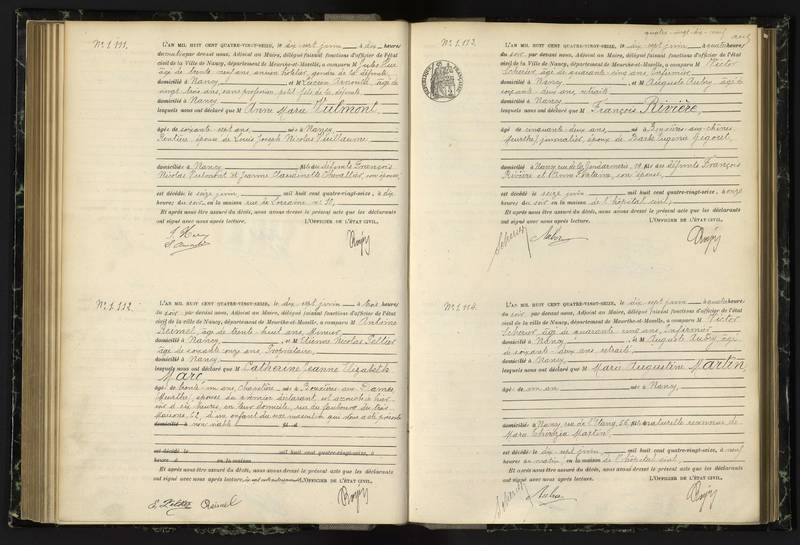 N° 1.111.
L'AN MIL HUIT CENT QUATRE-VINGT-SEIZE, le dix-sept juin à dix heures
du matin par devant nous, Adjoint au Maire, délégué faisant fonctions d'officier de l'état
civil de la ville de Nancy, département de Meurthe-et-Moselle, a comparu M Jules
âgé de trente neuf ans, ancien hôtelier, gendre de la défunte,
domicilié à Nancy, et M Lucien âgé de
vingt trois ans, sans profession, petit fils de la défunte,
domicilié à Nancy
lesquels nous ont déclaré que M Anne Marie Vulmont,
âgée de soixante-sept ans, née à Nancy
Rentière, épouse de Louis Joseph Nicolas Vuillaume
domiciliée à Nancy fille des défunts François
Nicolas Vulmont et Jeanne Claudinette Chevallier, son épouse,
est décédée le seize juin mil huit cent quatre-vingt-seize, à dix
heures du soir, en la maison rue de Lorraine n° 10,
Et après nous être assuré du décès, nous avons dressé le présent acte que les déclarants
ont signé avec nous après lecture. L'OFFICIER DE L'ÉTAT CIVIL,
N° 1.112.
L'AN MIL HUIT CENT QUATRE-VINGT-SEIZE, le dix-sept juin à trois heures
du soir par devant nous, Adjoint au Maire, délégué faisant fonctions d'officier de l'état
civil de la ville de Nancy, département de Meurthe-et-Moselle, a comparu M Antoine
âgé de trente-huit ans, Mineur
domicilié à Nancy et M Etienne Nicolas Pellier
âgé de soixante onze ans, Propriétaire,
domicilié à Nancy
lesquels nous ont déclaré que M Catherine Jeanne Elizabeth
Marc
âgée de trente-un ans, née à Bouxières-aux-Dames,
(Meurthe), épouse du premier déclarant, est accouchée hier
à six heures, en leur domicile, rue du faubourg des trois
Maisons, 52, d'un enfant du sexe masculin qui
domicilié à non viable
est décédé le mil huit cent quatre-vingt-seize, à
heures en la maison
Et après nous être assuré du décès, nous avons dressé le présent acte que les déclarants
ont signé avec nous après lecture. L'OFFICIER DE L'ÉTAT CIVIL,
quatre-vingt-dix-neuf
N° 1.113.
L'AN MIL HUIT CENT QUATRE-VINGT-SEIZE, le dix-sept juin à quatre heures
du soir par devant nous, Adjoint au Maire, délégué faisant fonctions d'officier de l'état
civil de la Ville de Nancy, département de Meurthe-et-Moselle, a comparu M Victor
Scherier âgé de quarante-cinq ans, Infirmier
domicilié à Nancy et M Auguste Aubry âgé de
soixante-deux ans, retraité
domicilié à Nancy
lesquels nous ont déclaré que M François Rivière,
âgé de cinquante-deux ans, né à Bouxières-aux-chênes,
(Meurthe), journalier, époux de Barbe Eugénie
domicilié à Nancy, rue de la Gendarmerie, fils des défunts François
Rivière et Anne Fontaine, son épouse,
est décédé le seize juin mil huit cent quatre-vingt-seize, à onze
heures du soir en la maison de l'hôpital civil,
Et après nous être assuré du décès, nous avons dressé le présent acte que les déclarants
ont signé avec nous après lecture. L'OFFICIER DE L'ÉTAT CIVIL,
N° 1.114.
L'AN MIL HUIT CENT QUATRE-VINGT-SEIZE, le dix-sept juin à quatre heures
du soir par devant nous, Adjoint au Maire, délégué faisant fonctions d'officier de l'état
civil de la ville de Nancy, département de Meurthe-et-Moselle, a comparu M Victor
Scherier âgé de quarante-cinq ans, Infirmier
domicilié à Nancy, et M Auguste Aubry âgé
de soixante-deux ans, retraité
domicilié à Nancy
lesquels nous ont déclaré que M Marc Augustine Martin,
âgée de un an née à Nancy,
domiciliée à Nancy, rue de l'Etang, 56, fille naturelle reconnue de
Marie Martin,
est décédée le dix-sept juin mil huit cent quatre-vingt-seize, à neuf
heures du matin, en la maison de l'hôpital civil,
Et après nous être assuré du décès, nous avons dressé le présent acte que les déclarants
ont signé avec nous après lecture. L'OFFICIER DE L'ÉTAT CIVIL,